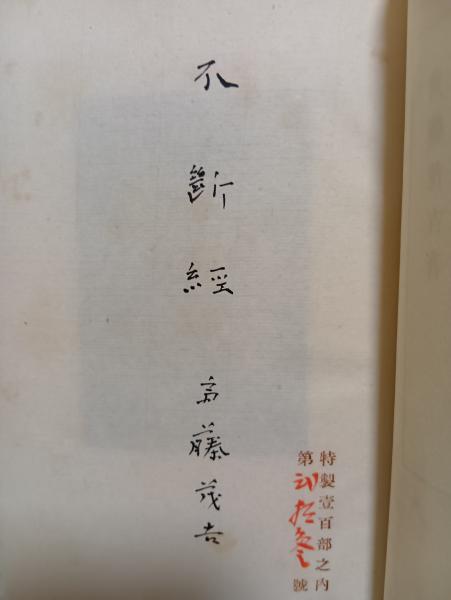 不斷經
斎藤茂吉
特製壹百部之内
第弍拾參號